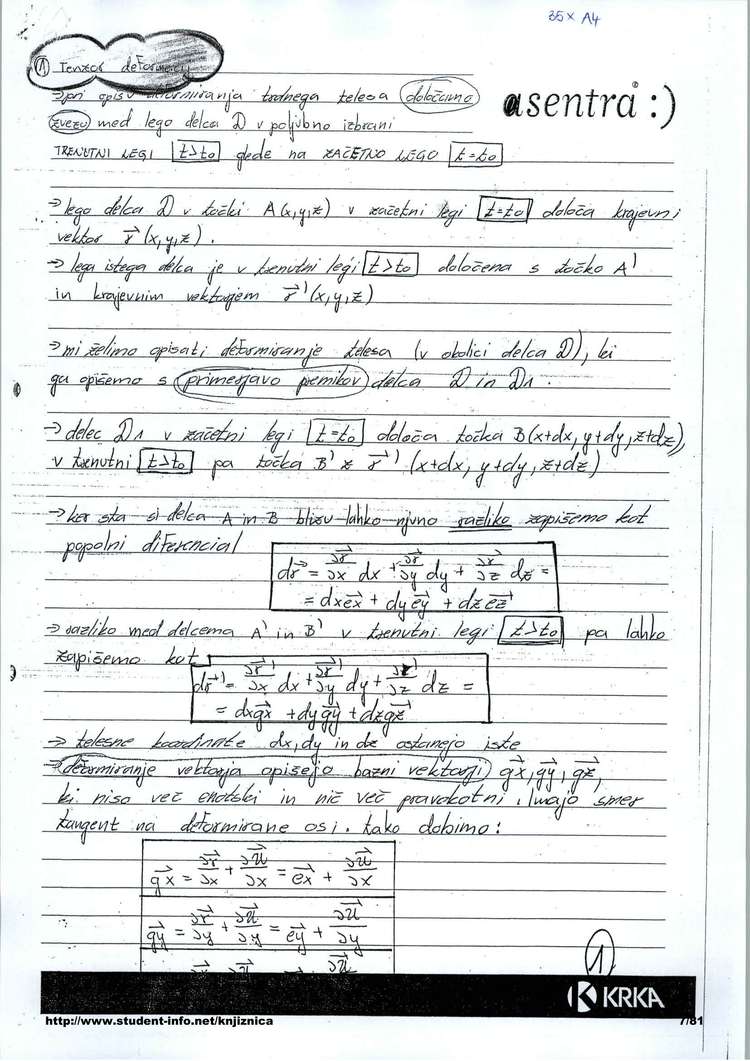 35x A4
① Tenzor deformacij
asentra :)
→ pri opisu deformiranja trdnega telesa določamo
zvezo med lego delca D v poljubno izbrani
TRENUTNI LEGI t>t₀ glede na ZAČETNO LEGO t=t₀
→ lego delca D v točki A(x,y,z) v začetni legi t=t₀ določa krajevni
vektor r⃗(x,y,z).
→ lega istega delca je v trenutni legi t>t₀ določena s točko A'
in krajevnim vektorjem r⃗'(x,y,z)
→ mi želimo opisati deformiranje telesa (v okolici delca D), ki
ga opišemo s primerjavo pomikov delca D in D₁.
→ delec D₁ v začetni legi t=t₀ določa točka B(x+dx, y+dy, z+dz),
v trenutni t>t₀ pa točka B' z r⃗' (x+dx, y+dy, z+dz)
→ ker sta si delca A in B blizu lahko njuno razliko zapišemo kot
popolni diferencial
dr⃗ = ∂r⃗/∂x dx + ∂r⃗/∂y dy + ∂r⃗/∂z dz =
= dx e⃗x + dy e⃗y + dz e⃗z
→ razliko med delcema A' in B' v trenutni legi t>t₀ pa lahko
zapišemo kot
dr⃗' = ∂r⃗'/∂x dx + ∂r⃗'/∂y dy + ∂r⃗'/∂z dz =
= dx g⃗x + dy g⃗y + dz g⃗z
→ telesne koordinate dx, dy in dz ostanejo iste
→ deformiranje vektorja opišejo bazni vektorji g⃗x, g⃗y, g⃗z,
ki niso več enotski in nič več pravokotni. Imajo smer
tangent na deformirane osi. Tako dobimo:
g⃗x = ∂r⃗/∂x + ∂u⃗/∂x = e⃗x + ∂u⃗/∂x
g⃗y = ∂r⃗/∂y + ∂u⃗/∂y = e⃗y + ∂u⃗/∂y
①
KRKA
http://www.student-info.net/knjiznica
7/81